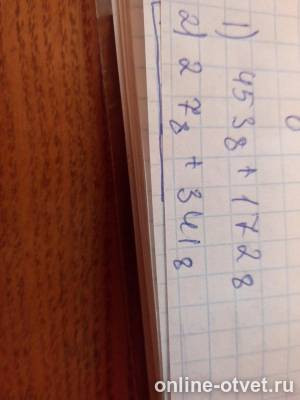 1) 453₈ + 172₈
2) 27₈ + 341₈
online-otvet.ru